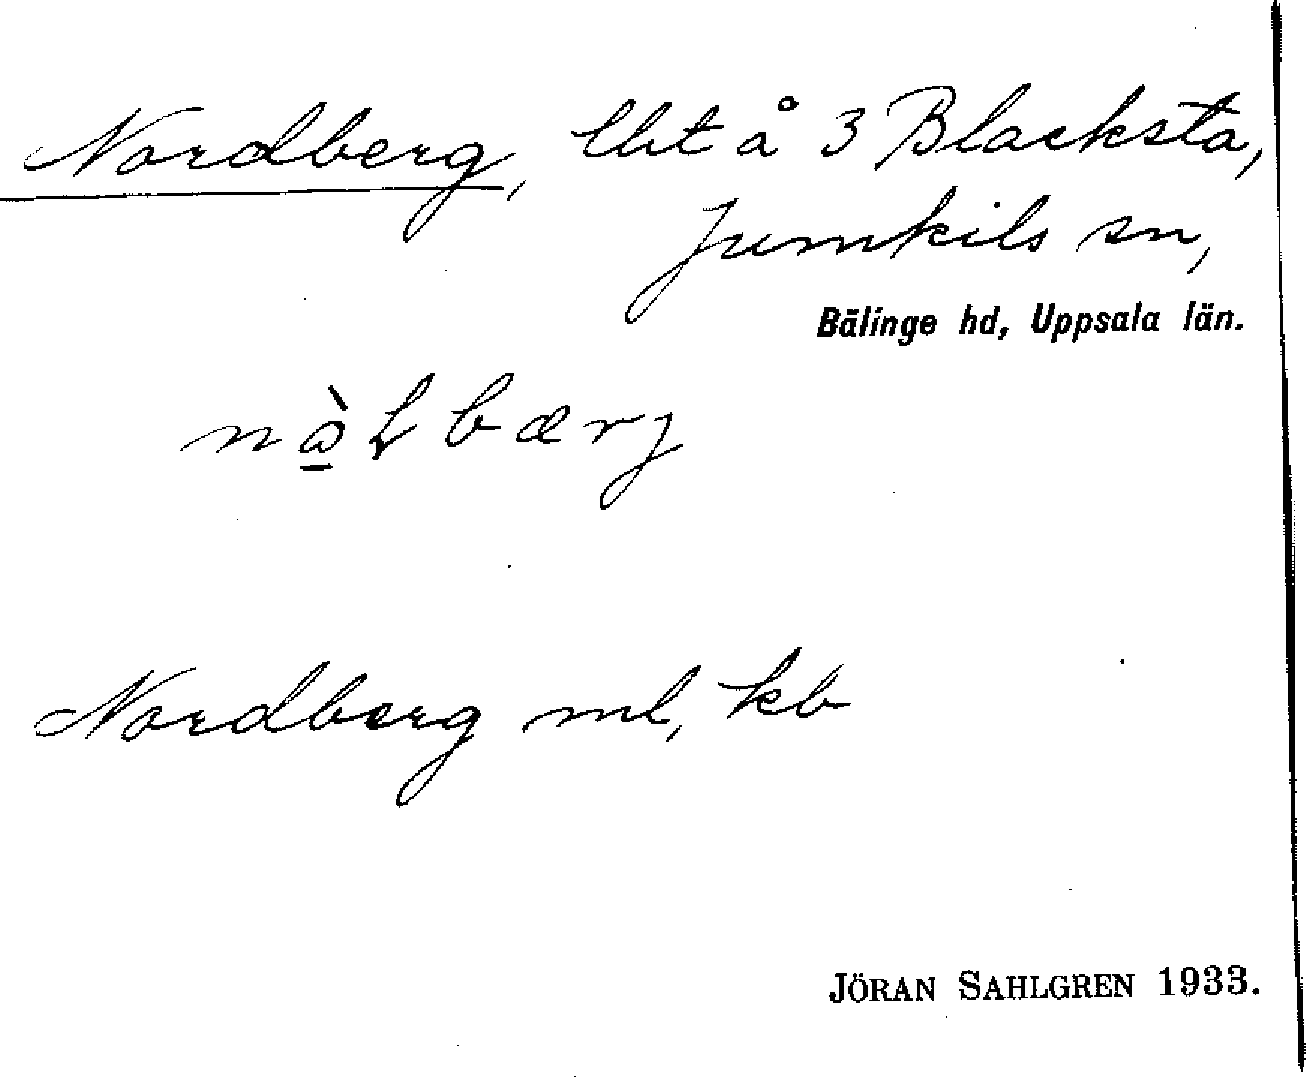 Nordberg, lht å 3 Blacksta,
Jumkils sn,
Bälinge hd, Uppsala län.
Nordberg ml, kb
JÖRAN SAHLGREN 1933.